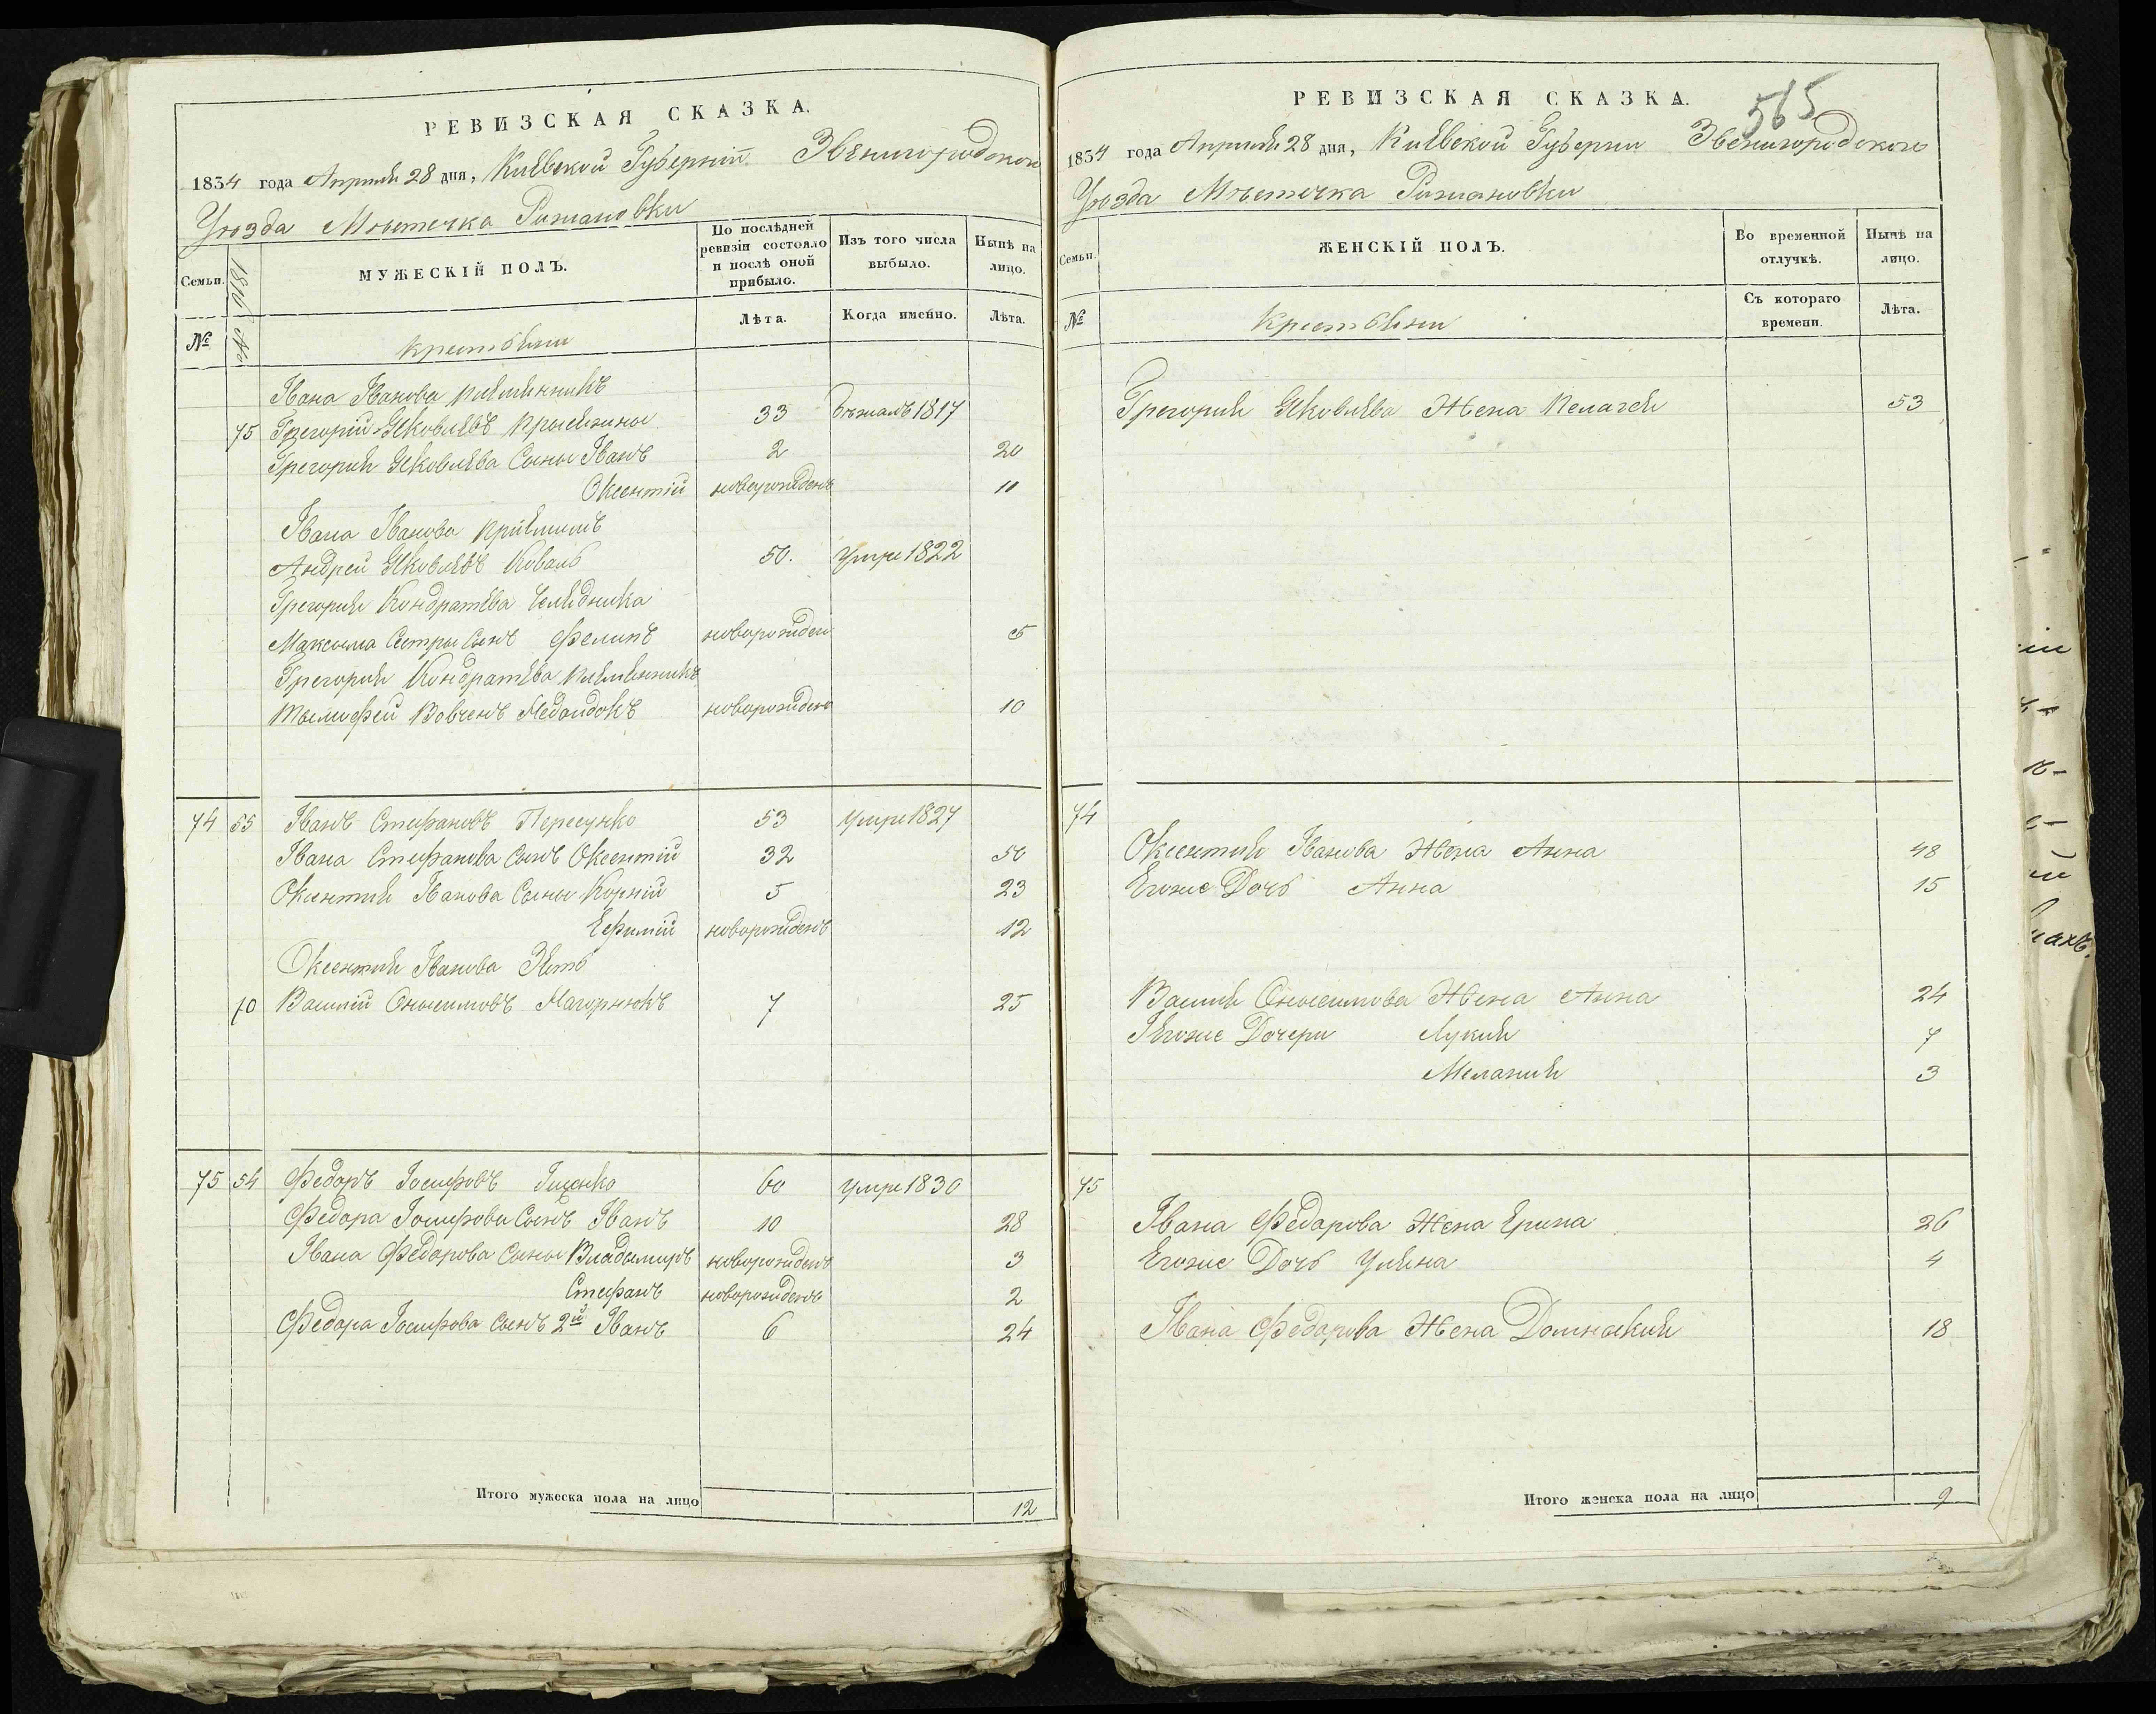 РЕВИЗСКАЯ СКАЗКА.
1834 года Апреля 28 дня, Кіевской Губерніи Звенигородского
Уѣзда Мѣстечка Рижановки
Семьи.
1816
МУЖЕСКІЙ ПОЛЪ.
По послѣдней ревизіи состояло и послѣ оной прибыло.
Изъ того числа выбыло.
Нынѣ на лицо.
№
№
крестьяни
Лѣта.
Когда имѣнно.
Лѣта.
Ивана Иванова племянникъ
75 Грегорій Яковлевъ 33 бѣжалъ 1817
Грегорія Яковлева Сыны Иванъ 2 20
Оксентій новорожденъ 11
Ивана Иванова
Андрей Яковлевъ Коваль 50. Умре 1822
Грегорія Кондратева
Максыма Сестры Сынъ Фелипъ новорожден 5
Грегорія Кондратева племянникъ
новорожден 10
74 55 Иванъ Стефановъ Пересунко 53 Умре 1827
Ивана Стефанова Сынъ Оксентій 32 50
Оксентія Иванова Сыны Корній 5 23
Ефимій новорожденъ 12
Оксентія Иванова Зять
70 Василій Онысимовъ Нагорнюкъ 7 25
75 54 Федоръ Іосифовъ 60 умре 1830
Федора Іосифова Сынъ Иванъ 10 28
Ивана Федорова Сыны Владымиръ новорожденъ 3
Стефанъ новорожденъ 2
Федора Іосифова Сынъ 2й Иванъ 6 24
Итого мужеска пола на лицо 12
565
РЕВИЗСКАЯ СКАЗКА.
1834 года Апреля 28 дня, Кіевской Губерни Звенигородского
Уѣзда Мѣстечка Рижановки
Семьи.
ЖЕНСКІЙ ПОЛЪ.
Во временной отлучкѣ.
Нынѣ на лицо.
№
Крестьяни
Съ котораго времени.
Лѣта.
Грегорія Яковлева Жена Пелагея 53
74
Оксентія Иванова Жена Анна 48
Егоже Дочь Анна 15
Василія Онысимова Жена Анна 24
Егоже Дочери Лукия 7
Мелания 3
75
Ивана Федорова Жена Ерина 26
Егоже Дочь Уляна 4
Ивана Федорова Жена 18
Итого женска пола на лицо 9